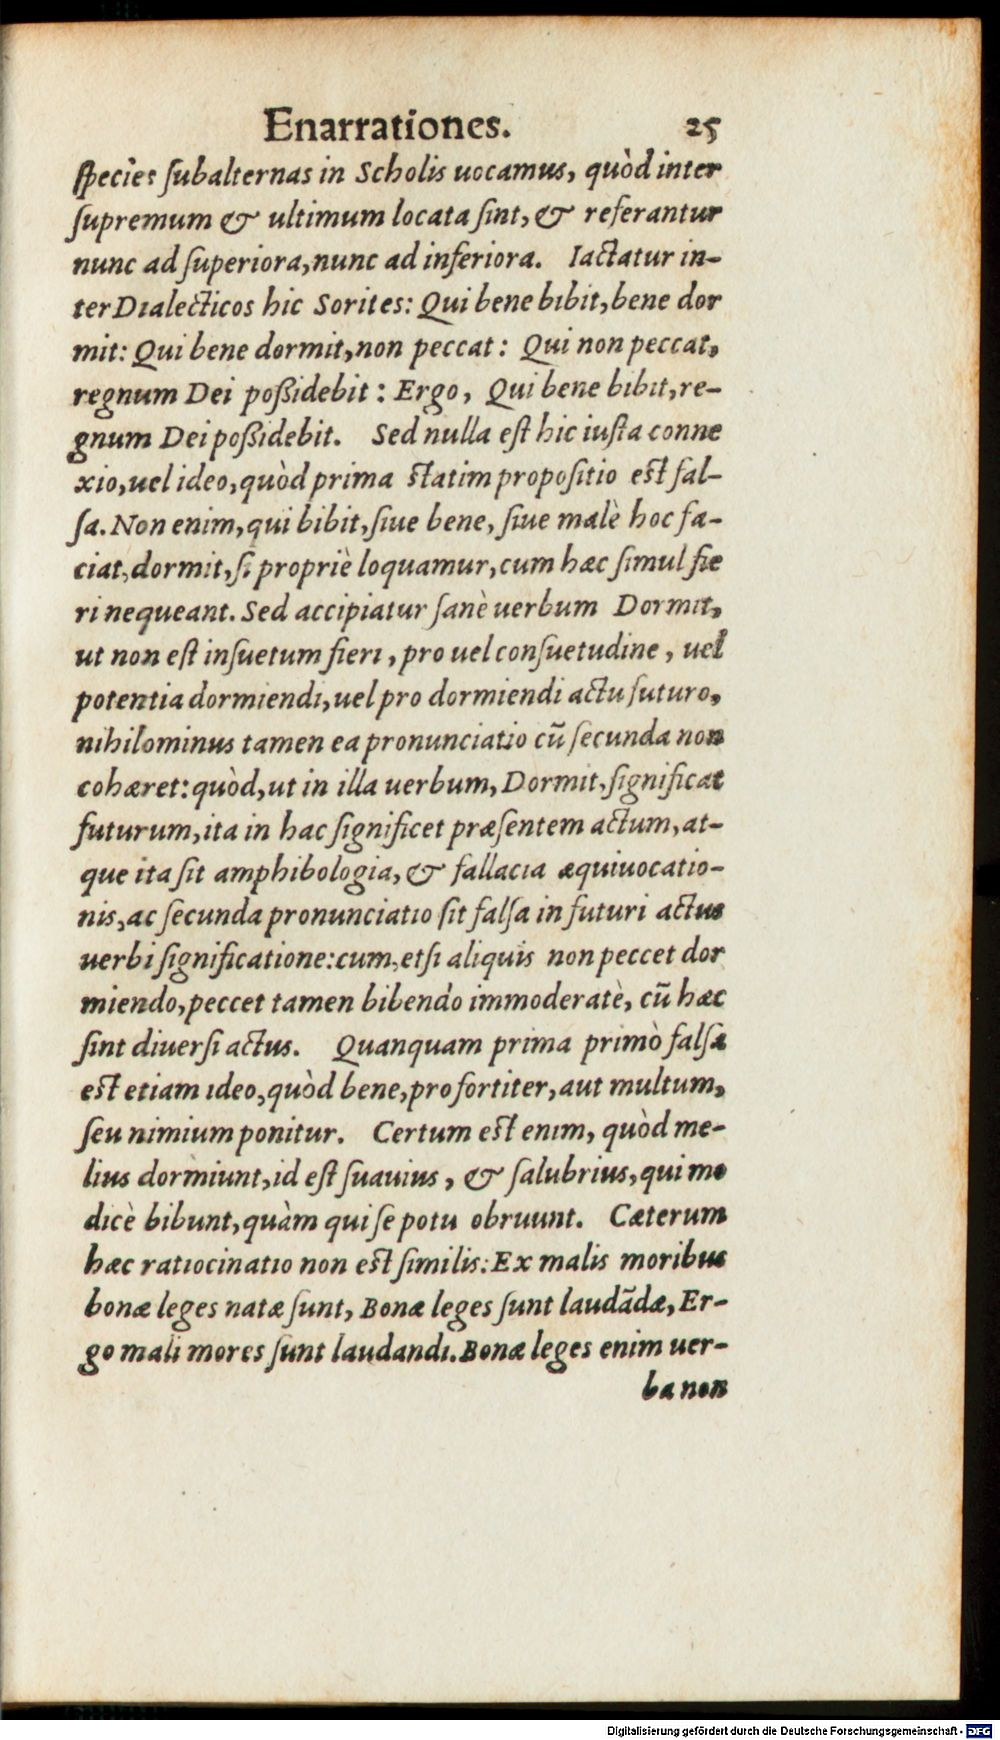 Enarrationes. 25
species subalternas in Scholis uocamus, quòd inter
supremum & ultimum locata sint, & referantur
nunc ad superiora, nunc ad inferiora. Iactatur in-
ter Dialecticos hic Sorites: Qui bene bibit, bene dor
mit: Qui bene dormit, non peccat: Qui non peccat,
regnum Dei poßidebit: Ergo, Qui bene bibit, re-
gnum Dei poßidebit. Sed nulla est hic iusta conne
xio, uel ideo, quòd prima statim propositio est fal-
sa. Non enim, qui bibit, siue bene, siue malè hoc fa-
ciat, dormit, si propriè loquamur, cum hæc simul fie
ri nequeant. Sed accipiatur sanè uerbum Dormit,
ut non est insuetum fieri, pro uel consuetudine, uel
potentia dormiendi, uel pro dormiendi actu futuro,
nihilominus tamen ea pronunciatio cũ secunda non
cohæret: quòd, ut in illa uerbum, Dormit, significat
futurum, ita in hac significet præsentem actum, at-
que ita sit amphibologia, & fallacia æquiuocatio-
nis, ac secunda pronunciatio sit falsa in futuri actus
uerbi significatione: cum, etsi aliquis non peccet dor
miendo, peccet tamen bibendo immoderatè, cũ hæc
sint diuersi actus. Quanquam prima primò falsa
est etiam ideo, quòd bene, pro fortiter, aut multum,
seu nimium ponitur. Certum est enim, quòd me-
lius dormiunt, id est suauius, & salubrius, qui mo
dicè bibunt, quàm qui se potu obruunt. Cæterum
hæc ratiocinatio non est similis: Ex malis moribus
bonæ leges natæ sunt, Bonæ leges sunt laudãdæ, Er-
go mali mores sunt laudandi. Bonæ leges enim uer-
ba non
Digitalisierung gefördert durch die Deutsche Forschungsgemeinschaft - DFG